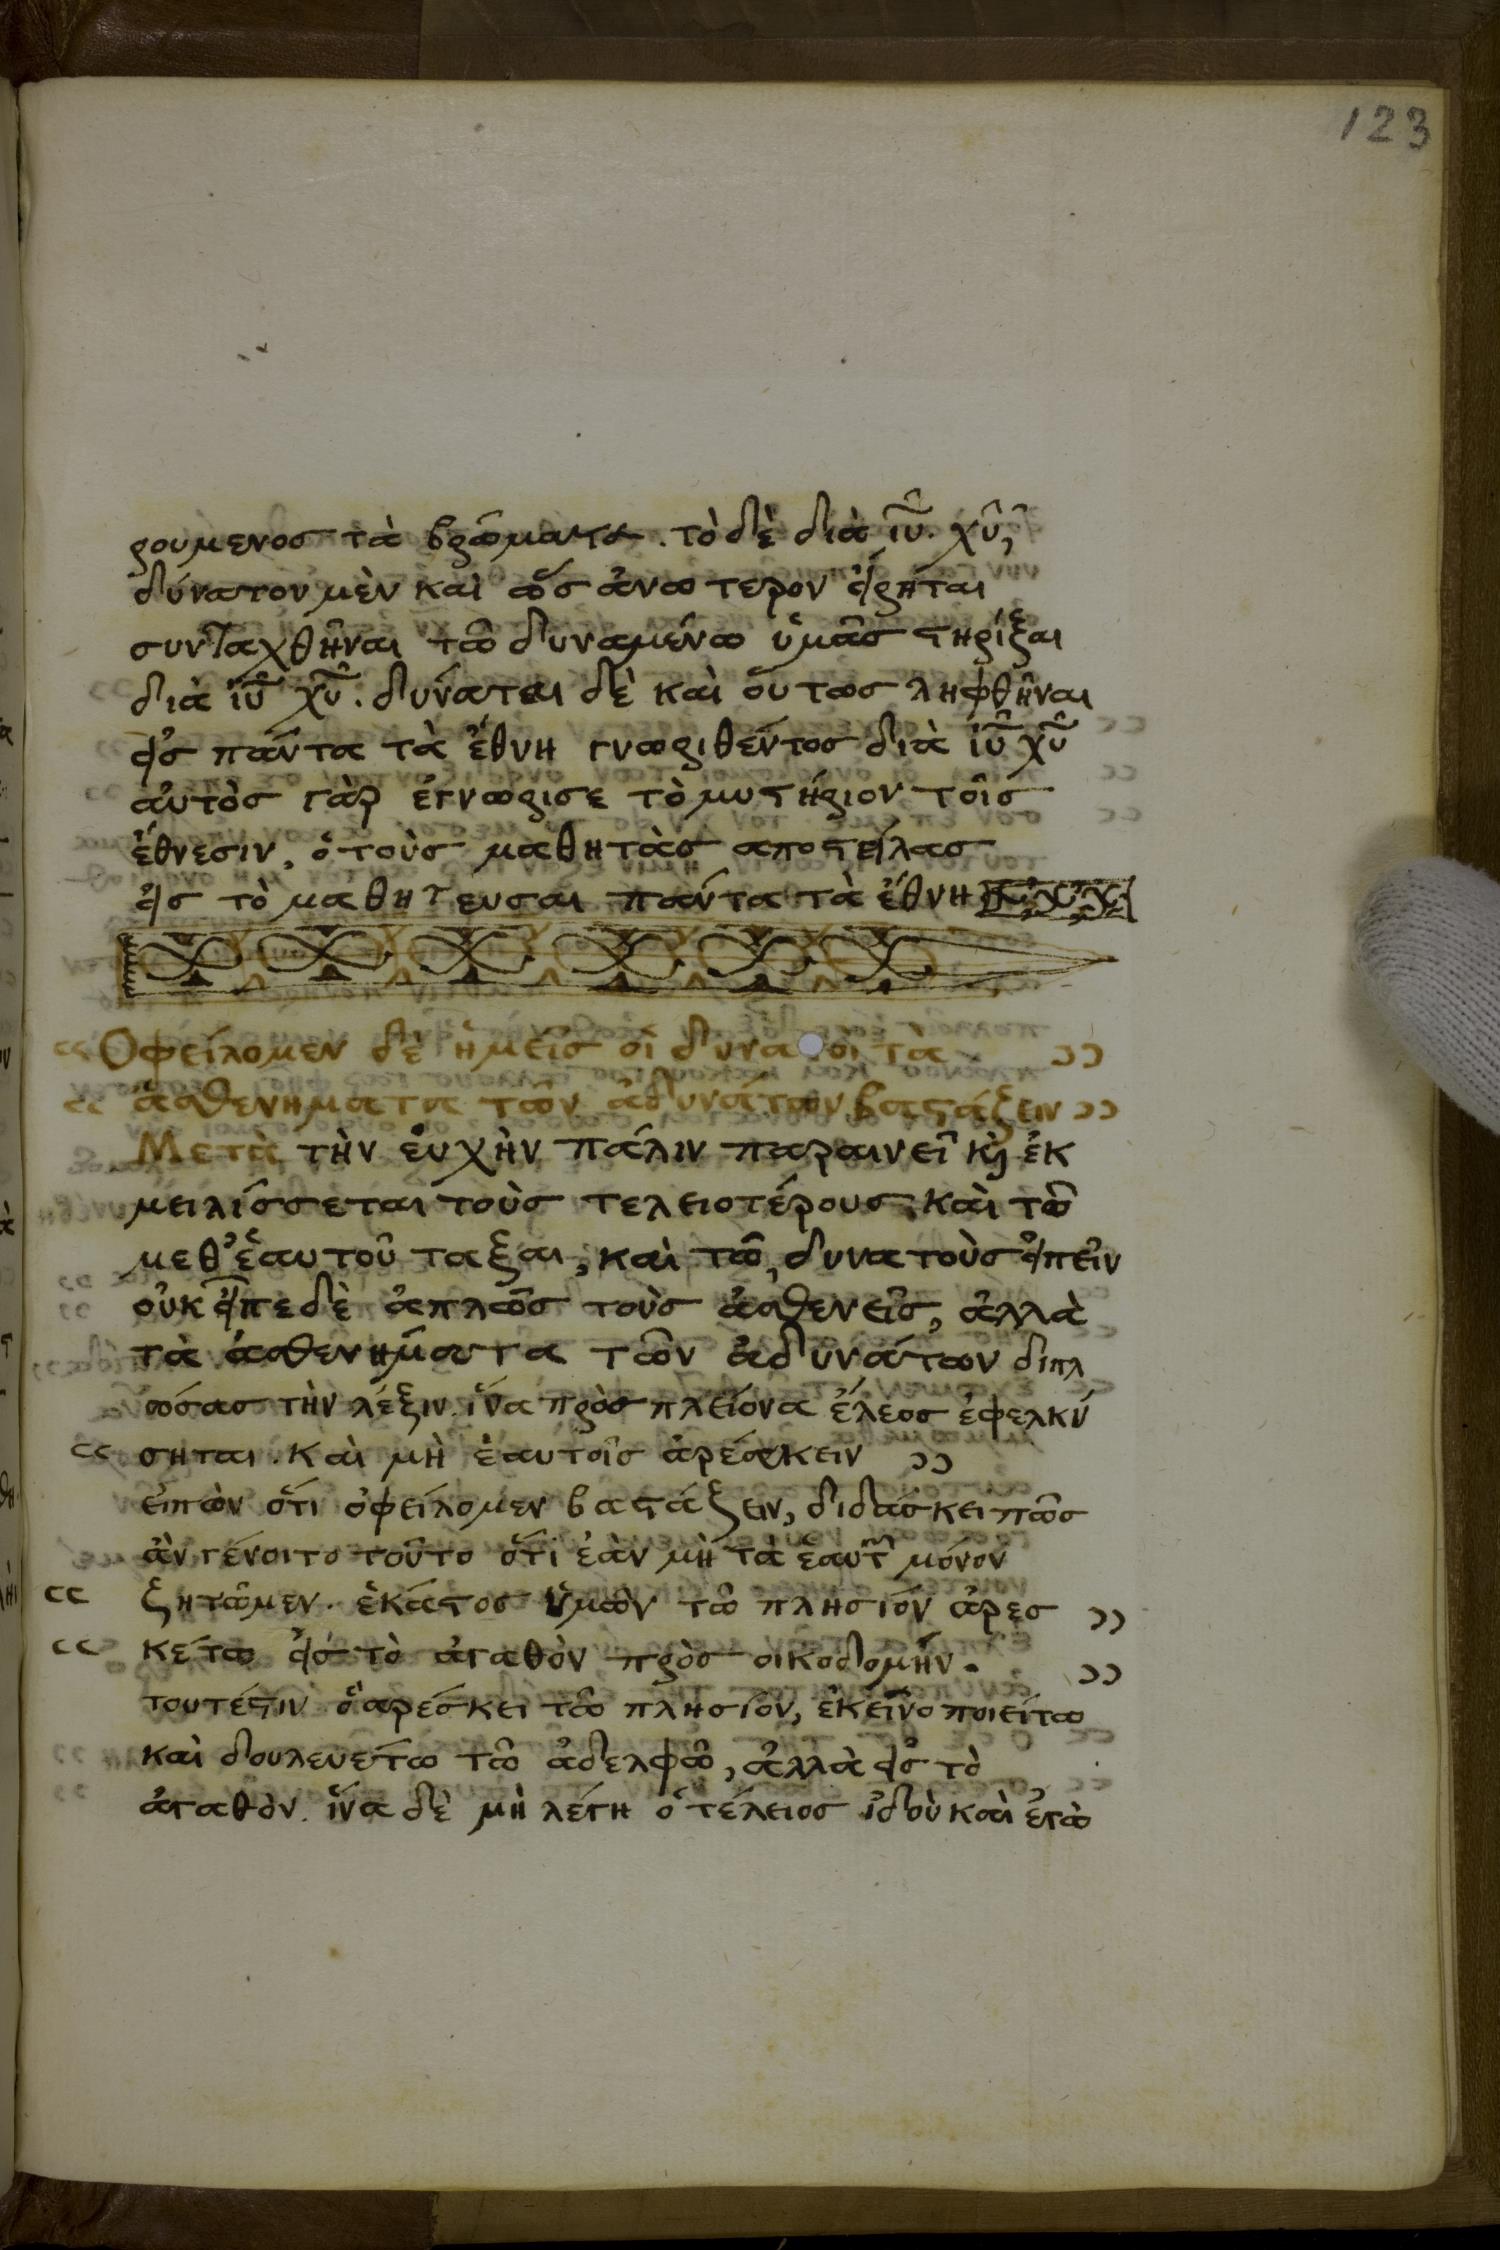 123
ρουμενος τὰ βρώματα. τὸ δὲ διὰ ἰῦ. χῦ,
δύνατον μὲν καὶ ὡς ἀνωτερον εἴρηται
συνταχθῆναι τῶ δυναμένω ὑμᾶς στηρίξαι
διὰ ἰῦ χῦ. δύναται δὲ καὶ οὕτως ληφθῆναι
εἰς πάντα τὰ ἔθνη γνωριθέντος διὰ ἰῦ χῦ
αὐτὸς γὰρ ἐγνώρισε τὸ μυστήριον τοῖς
ἔθνεσιν, ὁ τοὺς μαθητὰς αποστείλας
εἰς τὸ μαθητευσαι πάντα τὰ ἔθνη
Οφείλομεν δὲ ἡμεῖς οἱ δυνατοι τὰ
ἀσθενηματα τῶν ἀδυνάτων βαστάζειν
Μετὰ τὴν εὐχὴν πάλιν παραινεῖ κὶ ἐκ
μειλίσσεται τοὺς τελειοτέρους, καὶ τῶ
μεθ' ἑαυτοῦ ταξαι, καὶ τῶ, δυνατοὺς εἰπεῖν
οὐκ εἶπε δὲ ἁπλῶς τοὺς ἀσθενεῖς, ἀλλὰ
τὰ ἀσθενήματα τῶν ἀδυνάτων διπλ
ώσας τὴν λέξιν. ἵνα πρὸς πλείονα ἔλεος ἐφελκύ
σηται. Καὶ μὴ ἑαυτοῖς ἀρέσκειν
εἰπὼν ὅτι ὀφείλομεν βαστάζειν, διδάσκει πῶς
ἂν γένοιτο τοῦτο ὅτι ἐὰν μὴ τὰ ἑαυτῶν μόνον
ζητῶμεν. ἕκαστος ὑμῶν τῶ πλησίον ἀρεσ
κέτω εἰς τὸ ἀγαθὸν πρὸς οικοδομήν.
τουτέστιν ὃ αρέσκει τῶ πλησίον, ἐκεῖνο ποιείτω
καὶ δουλευέτω τῶ ἀδελφῶ, ἀλλὰ εἰς τὸ
ἀγαθὸν. ἵνα δὲ μὴ λέγη ὁ τέλειος ἰδοὺ καὶ ἐγὼ